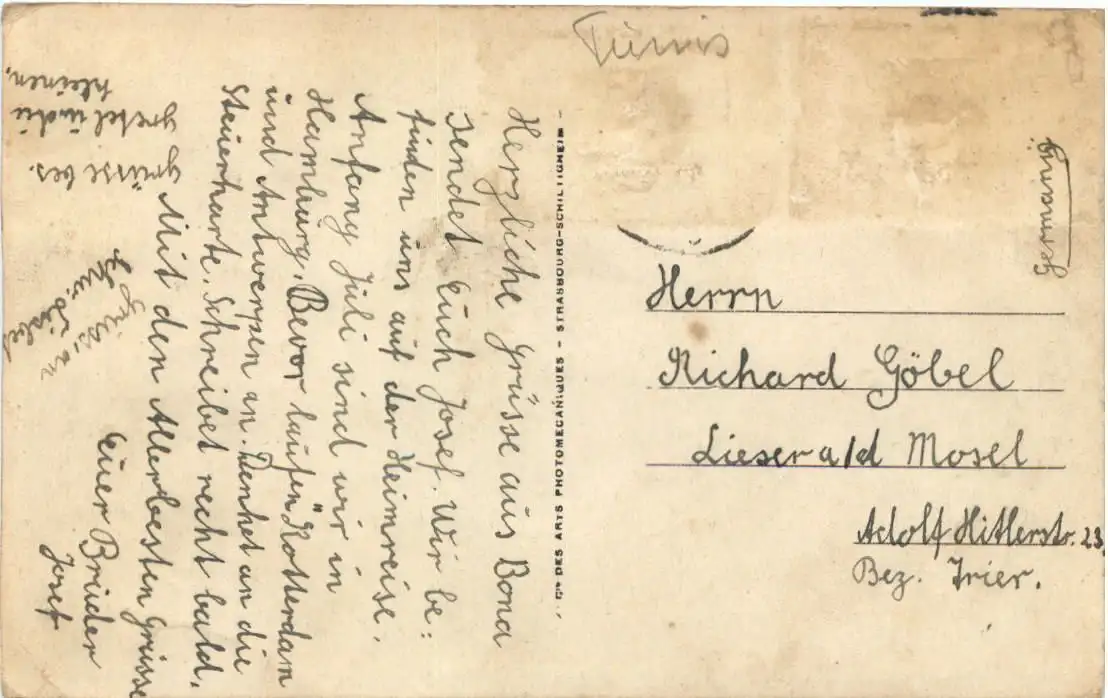 Tunis
Herzliche Grüsse aus Bona
sendet Euch Josef. Wir be:
finden uns auf der Heimreise.
Anfang Juli sind wir in
Hamburg. Bevor laufen Rotterdam
und Antwerpen an. Denket an die
Steuerkarte. Schreibet recht bald.
Mit den Allerbesten Grüsse
Euer Brüder
Josef
grüsse bes.
gretel und die
kleinen.
grüss an
CIE DES ARTS PHOTOMECANIQUES - STRASBOURG-SCHILTIGHEIM -
Germany
Herrn
Richard Göbel
Lieser a/d Mosel
Adolf Hitlerstr. 23.
Bez. Trier.